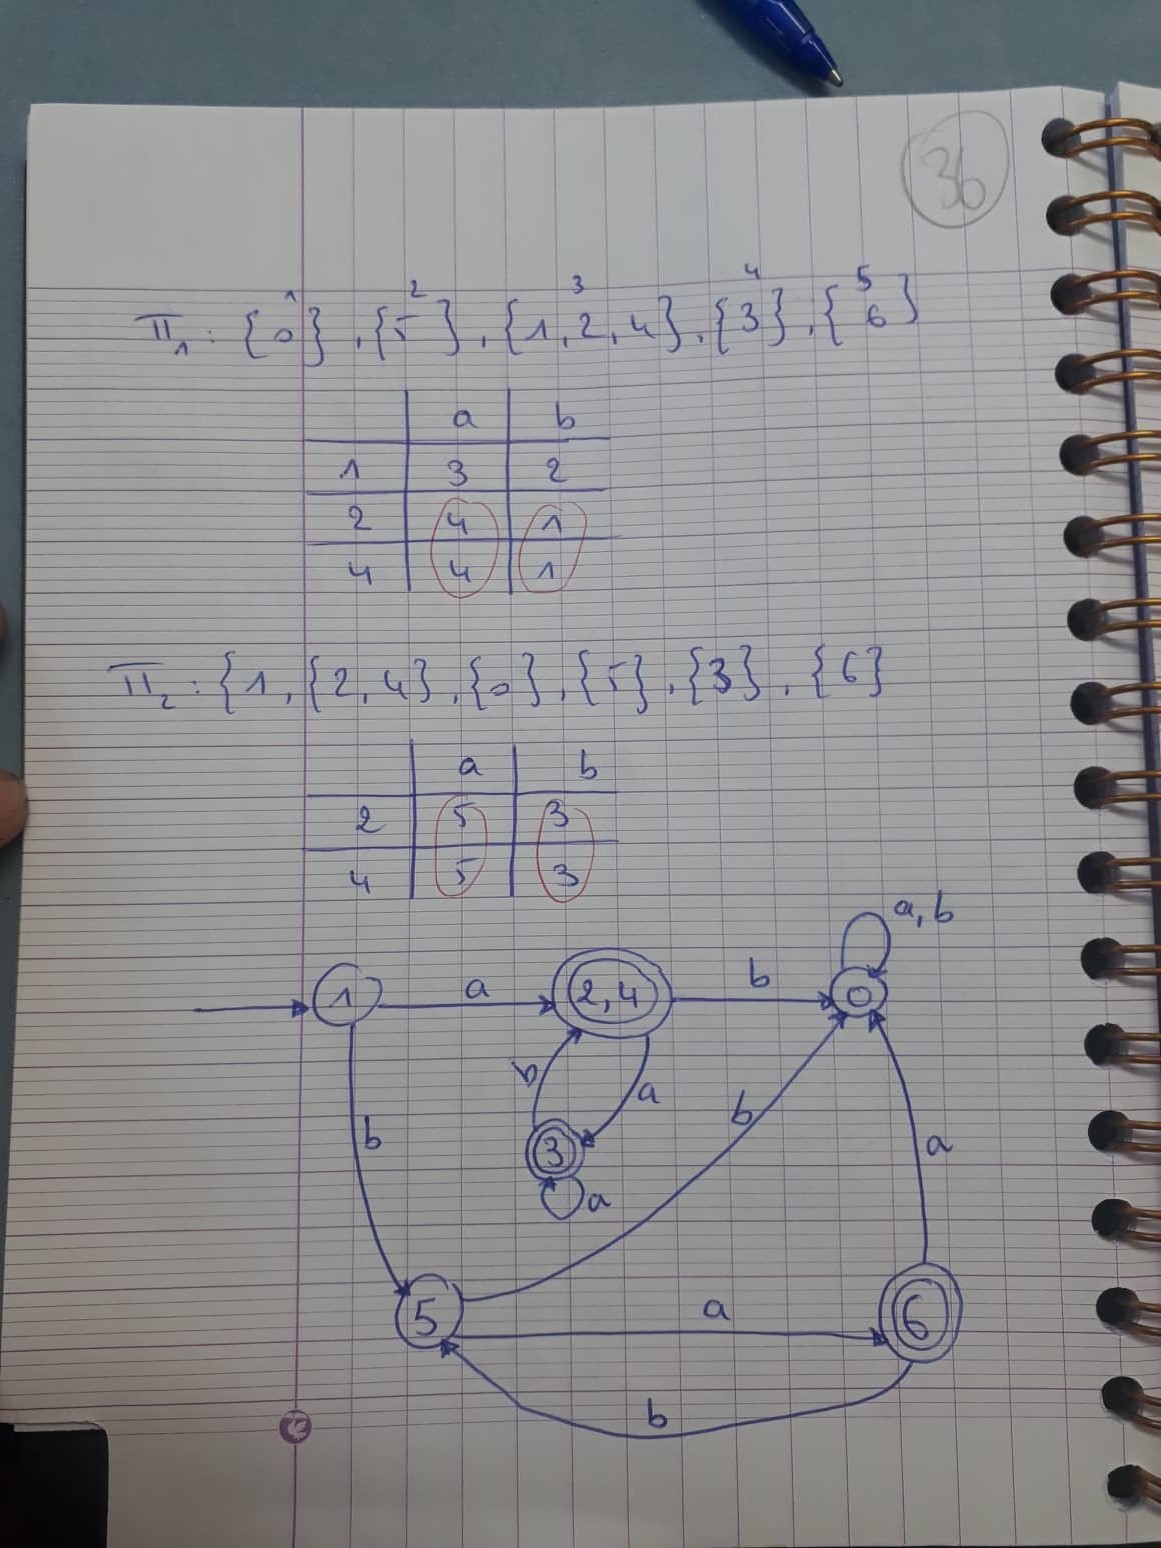 36
1 2 3 4 5
Π₁ : {0}, {5}, {1, 2, 4}, {3}, {6}
a b
1 3 2
2 4 1
4 4 1
Π₂ : {1, {2, 4}, {0}, {5}, {3}, {6}
a b
2 5 3
4 5 3
a, b
1 a 2,4 b 0
b a b
b 3 a
a
5 a 6
b